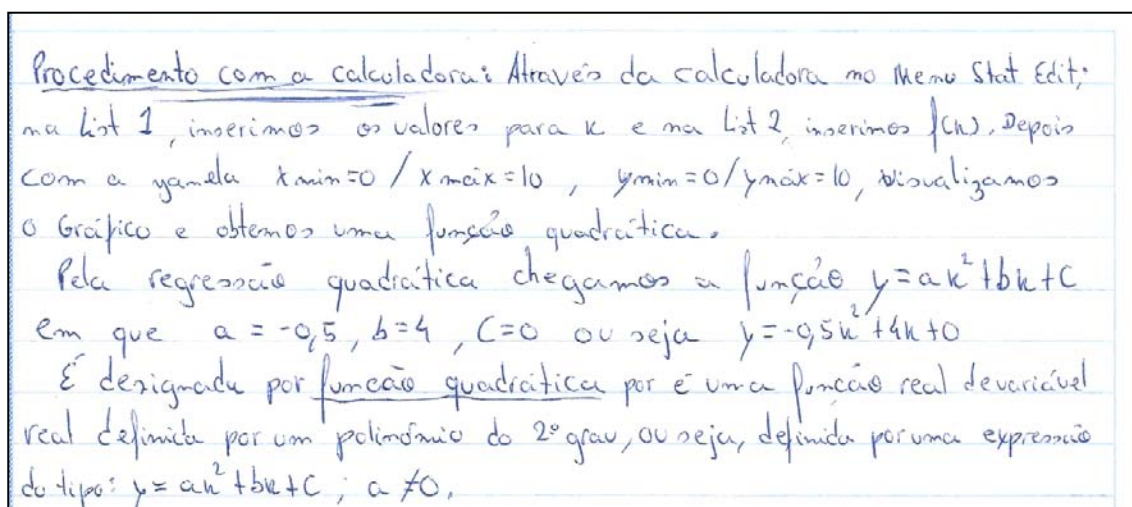 Procedimento com a calculadora: Através da calculadora no Menu Stat Edit;
na List 1, inserimos os valores para x e na List 2, inserimos f(x). Depois
com a yanela xmin=0 / xmáx=10, ymin=0/ymáx=10, visualizamos
o Gráfico e obtemos uma função quadrática.
Pela regressão quadrática chegamos a função y=ax²+bx+c
em que a = -0,5, b=4, C=0 ou seja y=-0,5x²+4x+0
É designada por funcão quadrática por é uma funcão real devariável
real definida por um polinómio do 2º grau, ou seja, definida por uma expressão
do tipo: y= ax²+bx+c ; a ≠0.